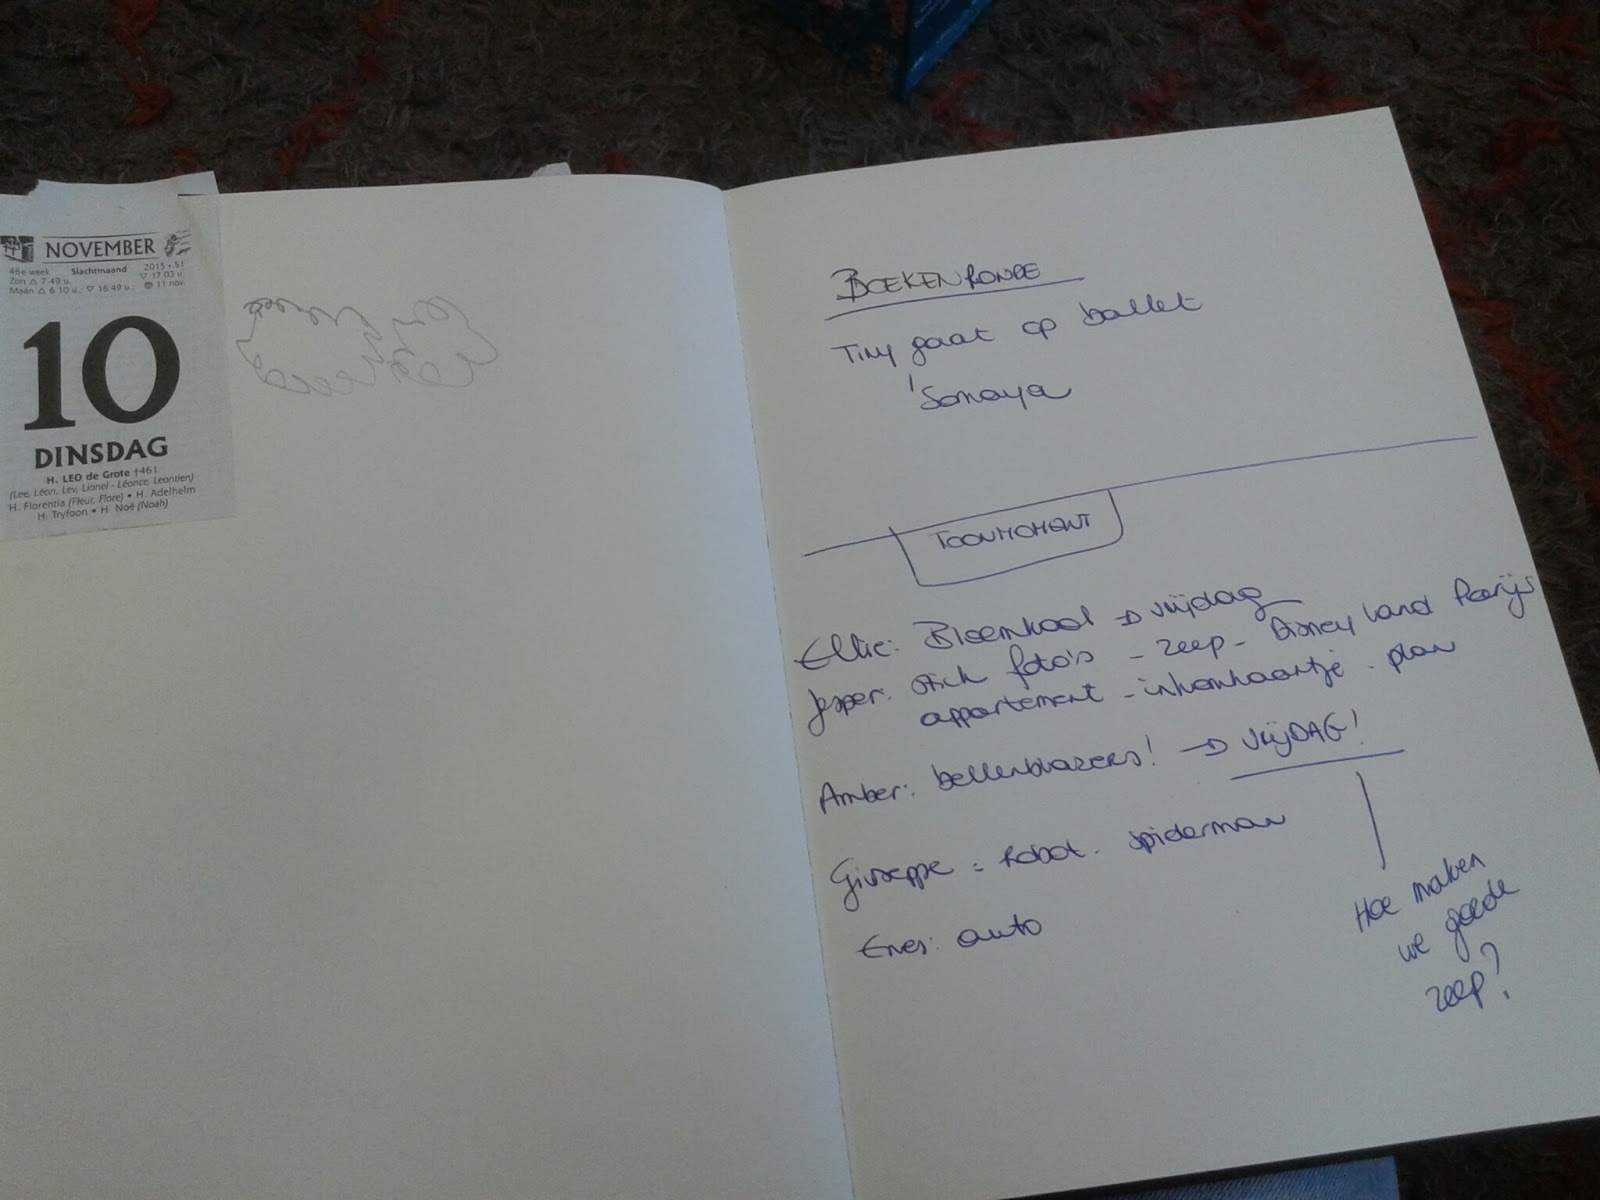 NOVEMBER
46e week Slachtmaand 2015 • 51
Zon △ 7.49 u. ▽ 17.03 u.
Maan △ 6.10 u. ▽ 16.49 u. 11 nov.
10
DINSDAG
H. LEO de Grote †461
(Lee, Léon, Lev, Lionel - Léonce, Leontien)
H. Florentia (Fleur, Flore) • H. Adelhelm
H. Tryfoon • H. Noë (Noah)
BOEKENRONDE
Tiny gaat op ballet
Soraya
TOONMOMENT
Ellie: Bloemkool → vrijdag
Jesper: stick foto's - zeep - Disney Land Parijs
appartement - inkomkaartje - plan
Amber: bellenblazers! → VRIJDAG!
Giuseppe: robot. spiderman
Enes: auto
Hoe maken
we goede
zeep?